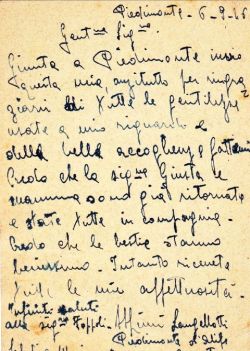 Piedimonte - 6-9-
Gent.me Sig.ne
Giunta a Piedimonte invio
questa mia, anzitutto per ringra
ziarvi di tutte le gentilezze
usate a mio riguardo e
della bella accoglienza fattami
Credo che la sig.na Giusta e
mamma sono già ritornate
e state tutte in compagnia.
Credo che le bestie stanno
benissimo. Intanto ricevete
tutte le mie affettuosità
Infiniti saluti
alla sig.na
Piedimonte d'Alife